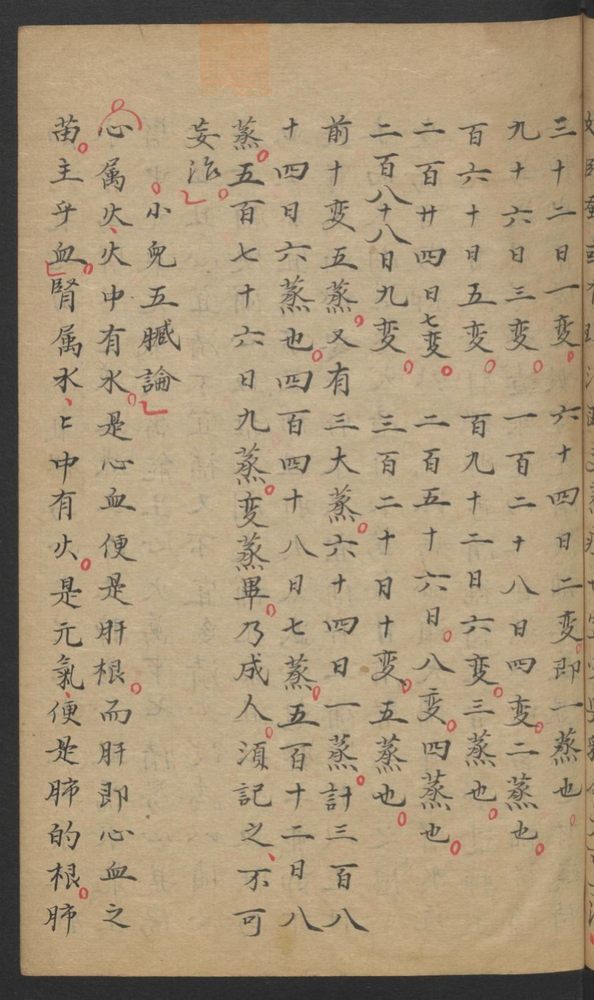 三十二日一変六十四日二変即一蒸也
九十六日三変一百二十八日四変二蒸也
百六十日五変百九十二日六変三蒸也
二百廿四日七変二百五十六日八変四蒸也
二百八十八日九変三百二十日十変五蒸也
前十変五蒸又有三大蒸六十四日一蒸計三百八
十四日六蒸也四百四十八日七蒸五百十二日八
蒸五百七十六日九蒸変蒸畢乃成人須記之不可
妄治
小児五臓論
心属火火中有水是心血便是肝根而肝即心血之
苗主乎血腎属水〻中有火是元氣便是肺的根肺